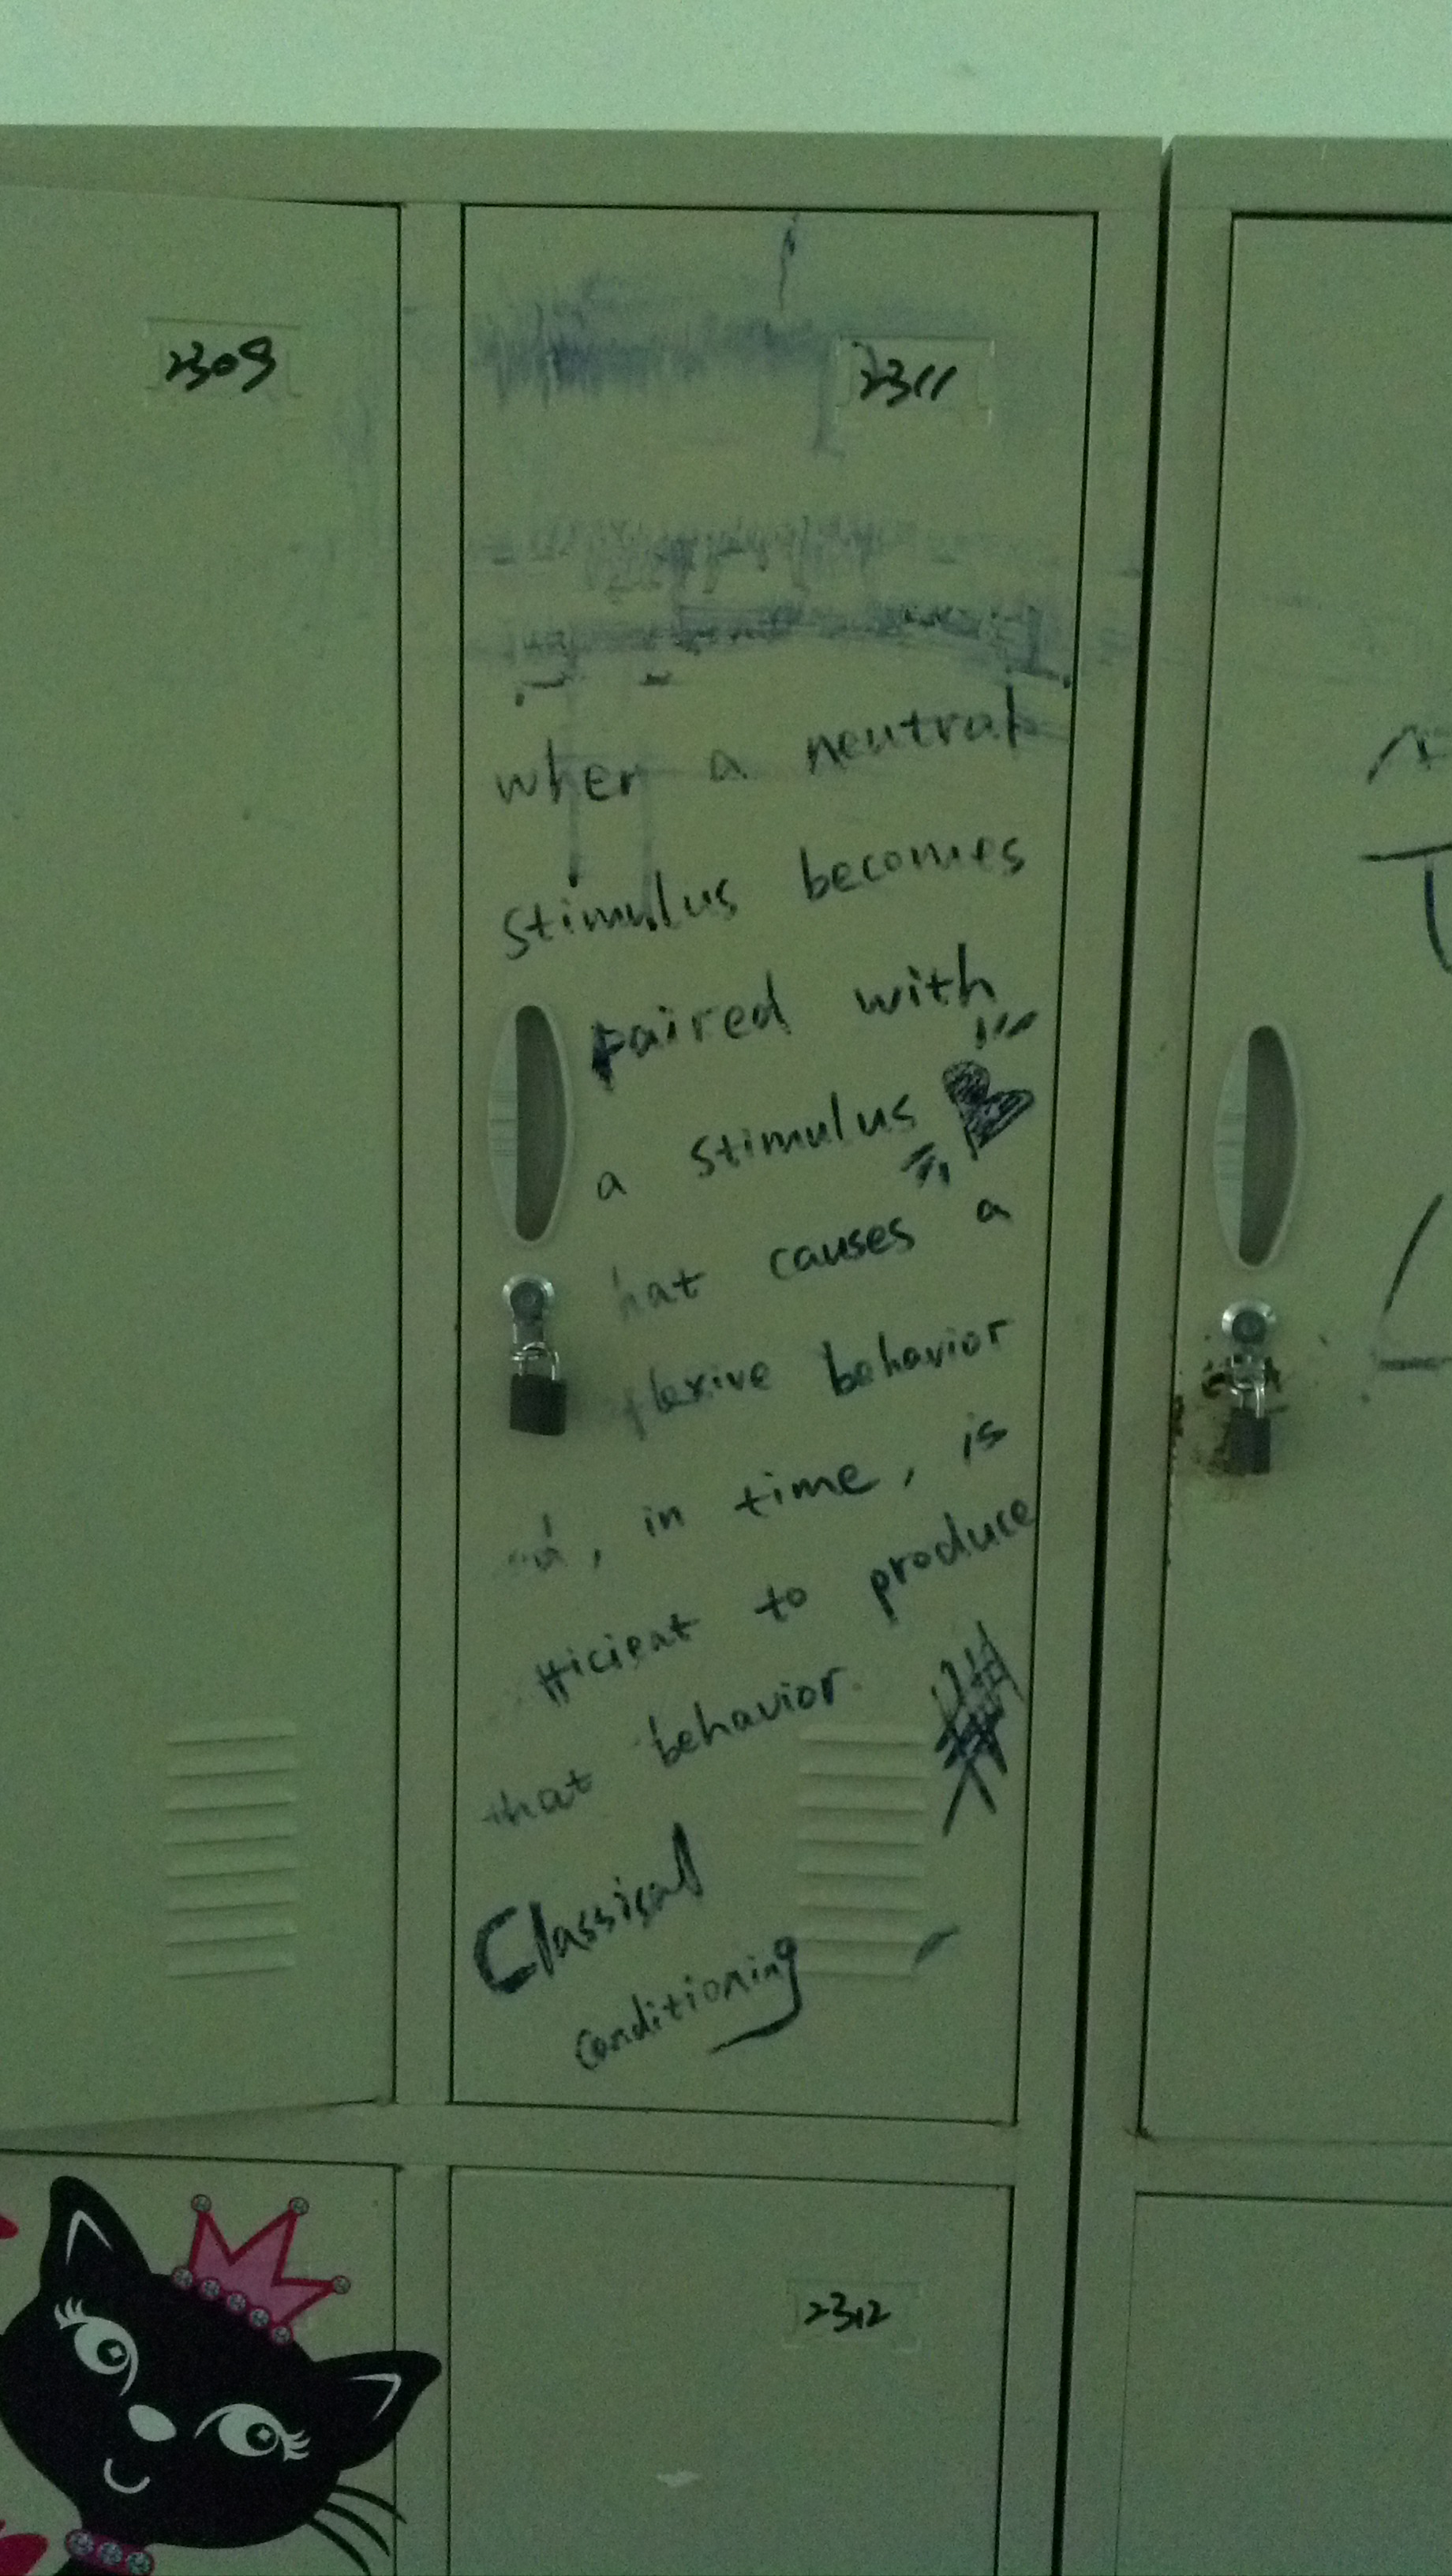 2309
2311
when a neutral
stimulus becomes
paired with
a stimulus
hat causes a
flexive behavior
d, in time, is
fficient to produce
that behavior.
Classical
conditioning
2312